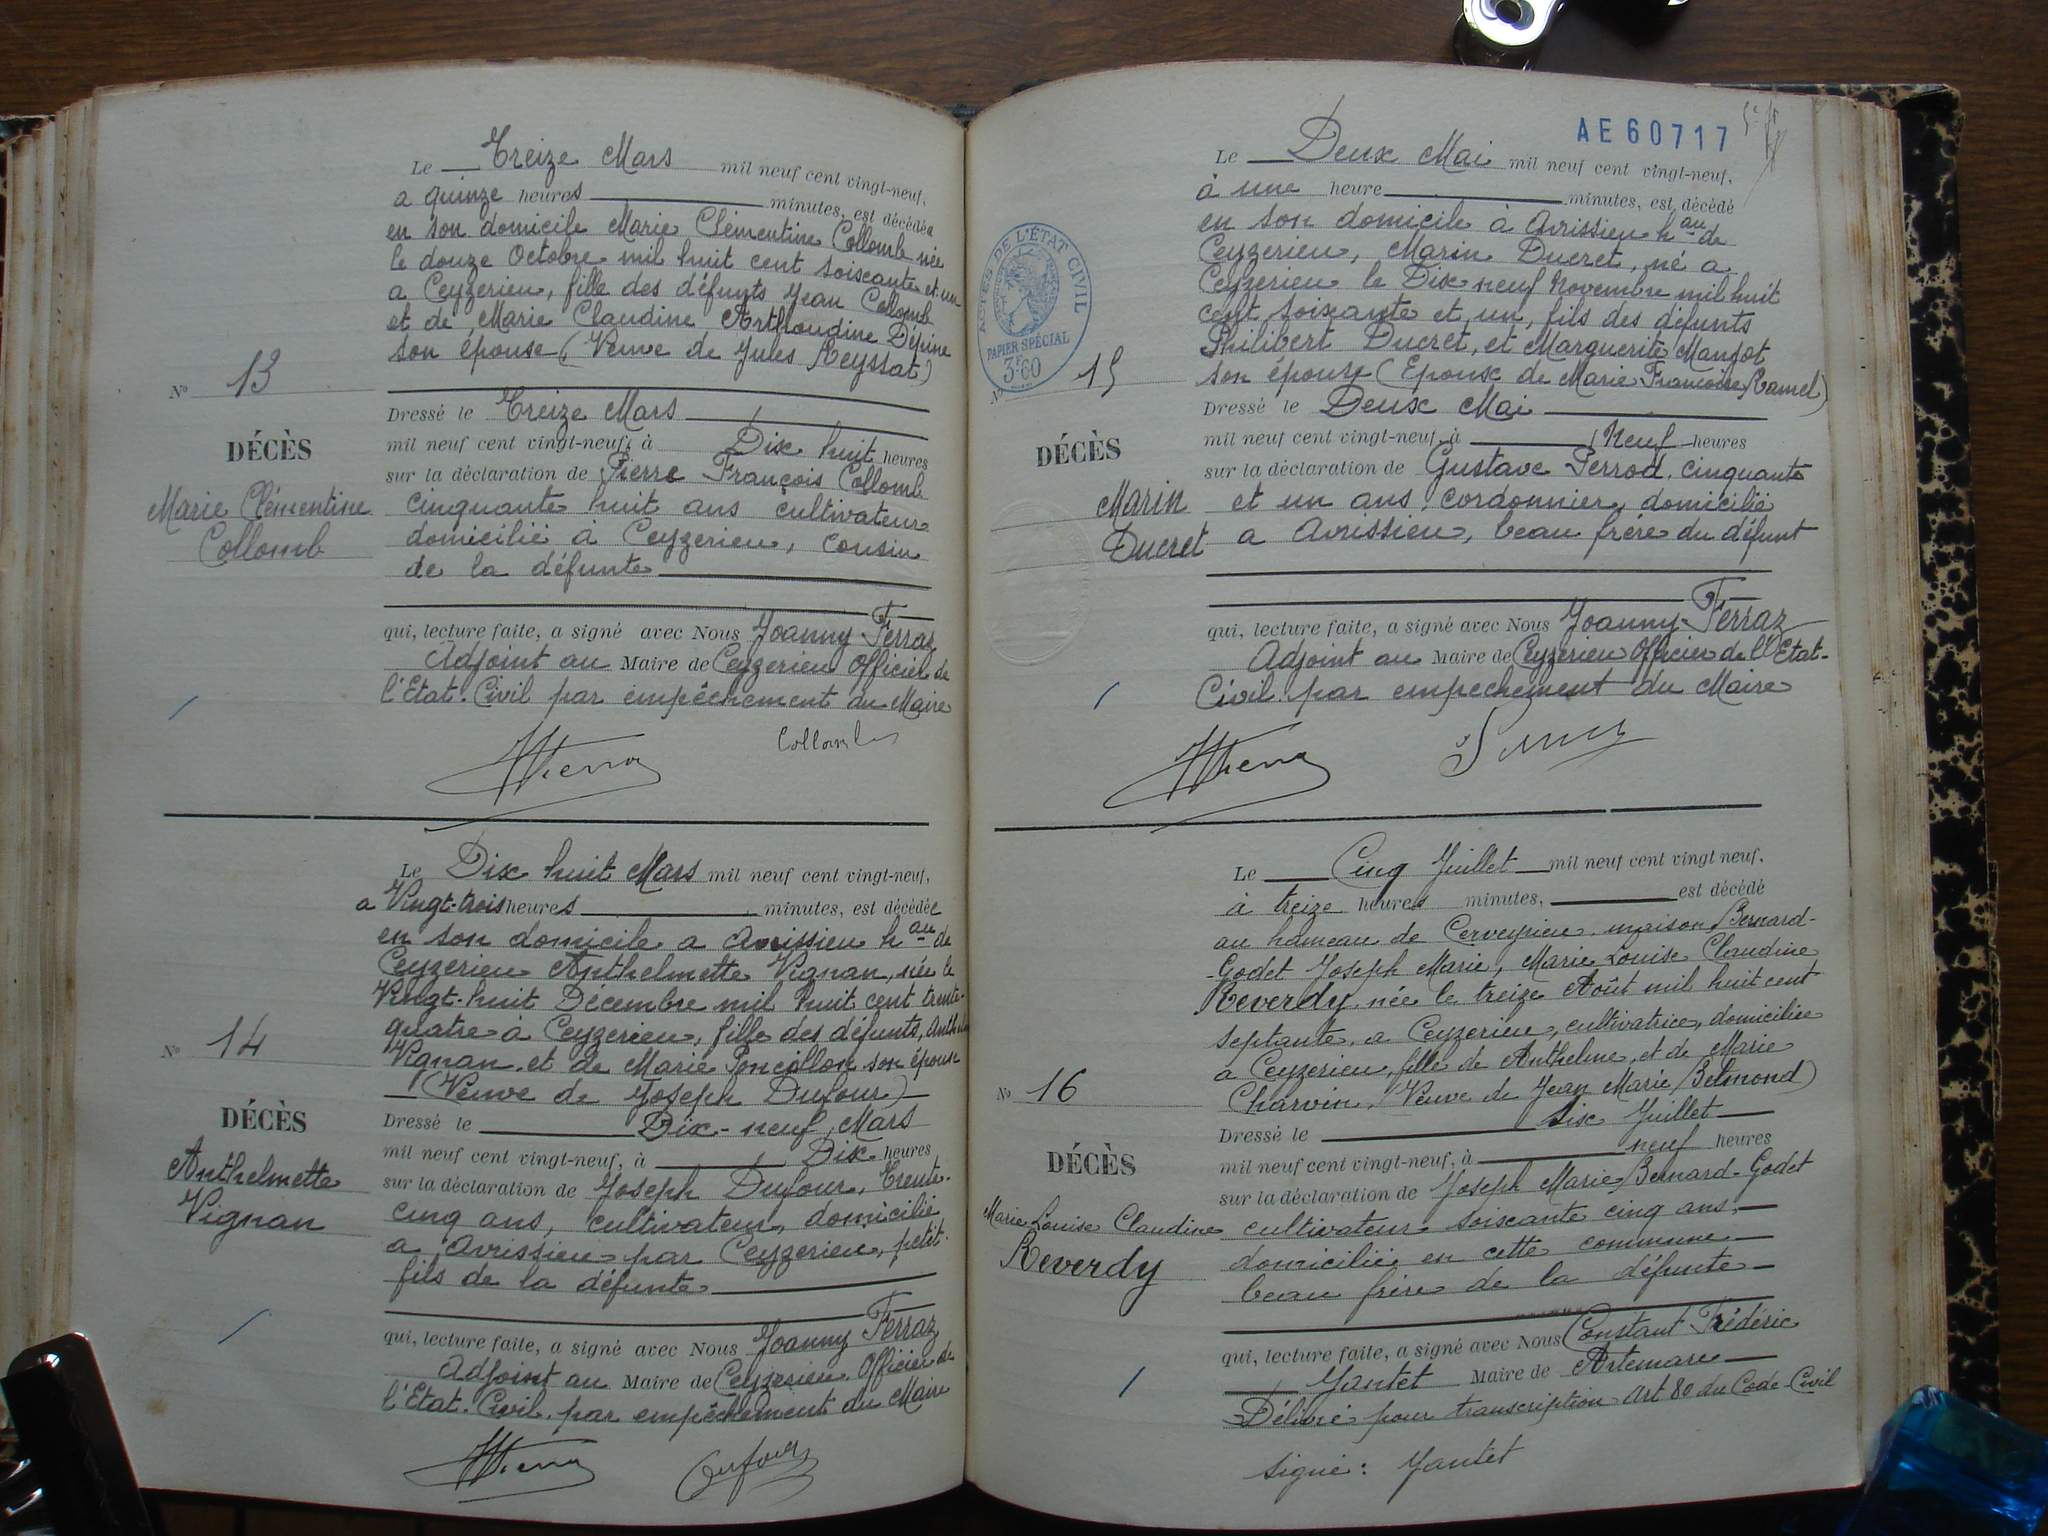 Le Treize Mars mil neuf cent vingt-neuf,
a quinze heures minutes, est décédée
en son domicile Marie Clémentine Collomb née
le douze Octobre mil huit cent soixante et un
a Ceyzerieu, fille des défunts Jean Collomb
et de Marie Claudine Arthaudine Dépine
son épouse (Veuve de Jules Reyssat)
No 13
DÉCÈS
Marie Clémentine
Collomb
Dressé le Treize Mars
mil neuf cent vingt-neuf, à Dix huit heures
sur la déclaration de Pierre François Collomb
cinquante huit ans cultivateur
domicilié à Ceyzerieu, cousin
de la défunte
qui, lecture faite, a signé avec Nous Joanny Ferraz
Adjoint au Maire de Ceyzerieu Officier de
l'Etat-Civil par empêchement du Maire
Collomb
Le Dix huit Mars mil neuf cent vingt-neuf,
a Vingt-trois heures minutes, est décédée
en son domicile a Avrissieu hau de
Ceyzerieu Anthelmette Vignan, née le
Vingt-huit Décembre mil huit cent trente-
quatre à Ceyzerieu, fille des défunts,
Vignan et de Marie son épouse
(Veuve de Joseph Dufour)
No 14
DÉCÈS
Anthelmette
Vignan
Dressé le Dix-neuf Mars
mil neuf cent vingt-neuf, à Dix heures
sur la déclaration de Joseph Dufour, Trente-
cinq ans, cultivateur, domicilié
a Avrissieu par Ceyzerieu, petit-
fils de la défunte
qui, lecture faite, a signé avec Nous Joanny Ferraz
Adjoint au Maire de Ceyzerieu Officier de
l'Etat-Civil par empêchement du Maire
Dufour
AE60717
Le Deux Mai mil neuf cent vingt-neuf,
à une heure minutes, est décédé
en son domicile à Avrissieu hau de
Ceyzerieu, Marin Ducret, né a
Ceyzerieu le Dix neuf Novembre mil huit
cent soixante et un, fils des défunts
Philibert Ducret, et Marguerite Manjot
son épouse (Epoux de Marie Françoise Ramel)
ACTES DE L'ÉTAT CIVIL
PAPIER SPÉCIAL
3F60
No 15
DÉCÈS
Marin
Ducret
Dressé le Deux Mai
mil neuf cent vingt-neuf, à Neuf heures
sur la déclaration de Gustave Perrod, cinquante
et un ans cordonnier, domicilié
a Avrissieu, beau frère du défunt
qui, lecture faite, a signé avec Nous Joanny Ferraz
Adjoint au Maire de Ceyzerieu Officier de l'Etat-
Civil par empechement du Maire
Le Cinq Juillet mil neuf cent vingt neuf,
à treize heures minutes, est décédé
au hameau de Cerveyrieu maison Bernard-
Godet Joseph Marie, Marie Louise Claudine
Reverdy née le treize Août mil huit cent
septante, a Ceyzerieu, cultivatrice, domiciliée
a Ceyzerieu, fille de Anthelme, et de Marie
Charvin, Veuve de Jean Marie Belmond)
No 16
DÉCÈS
Marie Louise Claudine
Reverdy
Dressé le six Juillet
mil neuf cent vingt-neuf, à neuf heures
sur la déclaration de Joseph Marie Bernard-Godet
cultivateur soixante cinq ans,
domicilié en cette commune
beau frère de la défunte
qui, lecture faite, a signé avec Nous Constant Frédéric
Jantet Maire de Artemare
Délivré pour transcription Art 80 du Code Civil
signé: Jantet